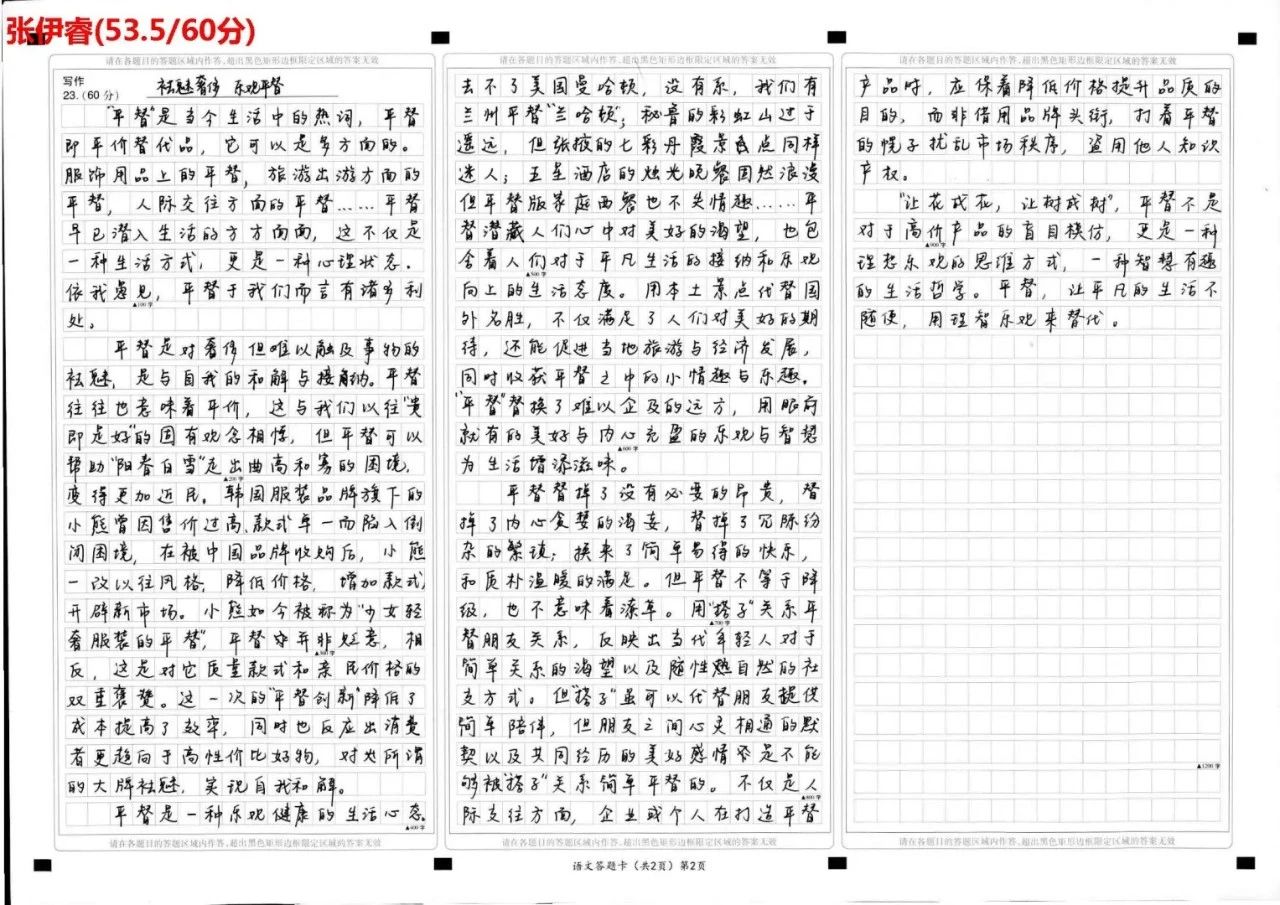 张伊睿(53.5/60分)
请在各题目的答题区域内作答,超出黑色矩形边框限定区域的答案无效
写作
23.（60 分）
祛魅奢侈 乐观平替
“平替”是当今生活中的热词，平替
即平价替代品，它可以是多方面的。
服饰用品上的平替，旅游出游方面的
平替，人际交往方面的平替……平替
早已潜入生活的方方面面，这不仅是
一种生活方式，更是一种心理状态。
依我愚见，平替于我们而言有诸多利
▲100 字
处。
平替是对奢侈但难以触及事物的
祛魅，是与自我的和解与接纳。平替
往往也意味着平价，这与我们以往“贵
即是好”的固有观念相悖，但平替可以
帮助“阳春白雪”走出曲高和寡的困境，
▲200 字
变得更加近民。韩国服装品牌旗下的
小熊曾因售价过高、款式单一而陷入倒
闭困境，在被中国品牌收购后，小熊
一改以往风格，降低价格，增加款式，
开辟新市场。小熊如今被称为“少女轻
奢服装的平替”，平替并非贬意，相
▲300 字
反，这是对它质量款式和亲民价格的
双重褒赞。这一次的“平替创新”降低了
成本提高了效率，同时也反应出消费
者更趋向于高性价比好物，对于所谓
的大牌祛魅，实现自我和解。
平替是一种乐观健康的生活心态。
▲400 字
请在各题目的答题区域内作答,超出黑色矩形边框限定区域的答案无效
请在各题目的答题区域内作答,超出黑色矩形边框限定区域的答案无效
去不了美国曼哈顿，没有系，我们有
兰州平替“兰哈顿”；秘鲁的彩虹山过于
遥远，但张掖的七彩丹霞景点同样
迷人；五星酒店的烛光晚餐固然浪漫
但平替版家庭西餐也不失情趣……平
替潜藏人们心中对美好的渴望，也包
含着人们对于平凡生活的接纳和乐观
▲500 字
向上的生活态度。用本土景点代替国
外名胜，不仅满足了人们对美好的期
待，还能促进当地旅游与经济发展，
同时收获平替之中的小情趣与乐趣。
“平替”替换了难以企及的远方，用眼前
就有的美好与内心充盈的乐观与智慧
▲600 字
为生活增添滋味。
平替替掉了没有必要的昂贵，替
掉了内心贪婪的渴妄，替掉了冗脉纷
杂的繁琐；换来了简单易得的快乐，
和质朴温暖的满足。但平替不等于降
级，也不意味着潦草。用“搭子”关系平
▲700 字
替朋友关系，反映出当代年轻人对于
简单关系的渴望以及随性自然的社
交方式。但“搭子”虽可以代替朋友提供
简单陪伴，但朋友之间心灵相通的默
契以及共同经历的美好感情是不能
够被“搭子”关系简单平替的。不仅是人
▲800 字
际交往方面，企业或个人在打造平替
请在各题目的答题区域内作答,超出黑色矩形边框限定区域的答案无效
语文答题卡（共2页）第2页
请在各题目的答题区域内作答,超出黑色矩形边框限定区域的答案无效
产品时，应保着降低价格提升品质的
目的，而非借用品牌头衔，打着平替
的幌子扰乱市场秩序，盗用他人知识
产权。
“让花成花，让树成树”，平替不是
对于高价产品的盲目模仿，更是一种
▲900 字
理想乐观的思维方式，一种智慧有趣
的生活哲学。平替，让平凡的生活不
随便，用理智乐观来替代。
▲1200 字
请在各题目的答题区域内作答,超出黑色矩形边框限定区域的答案无效